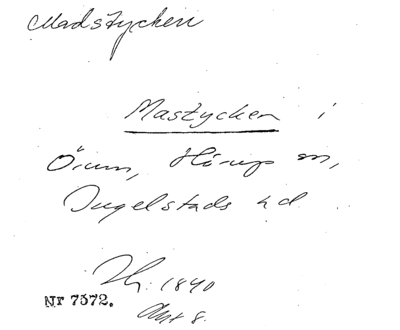 Madstycken
Mastycken i
Örum, Hörup sn,
Ingelstads hd
1840
Nr 7372.
Akt 8.